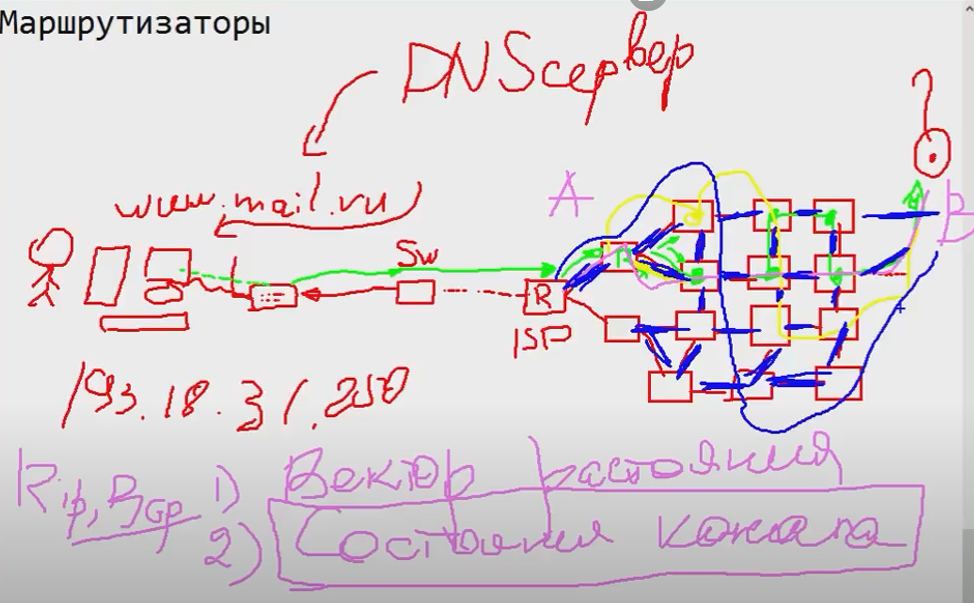 Маршрутизаторы
DNS сервер
?
www.mail.ru
A
B
Sw
R
ISP
193.18.31.250
Rip, Bgp 1) Вектор растояния
2) Состояния канала